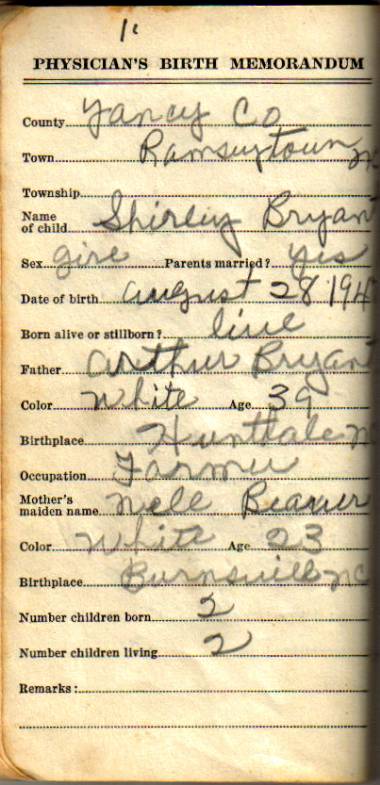 11
PHYSICIAN'S BIRTH MEMORANDUM
County Yancy Co
Town Ramseytown
Township
Name of child Shirley Bryant
Sex girl Parents married? yes
Date of birth august 28 194
Born alive or stillborn? live
Father Arthur Bryant
Color White Age 39
Birthplace Huntdale NC
Occupation Farmer
Mother's maiden name Nell Beaver
Color White Age 23
Birthplace Burnsvill NC
Number children born 2
Number children living 2
Remarks: